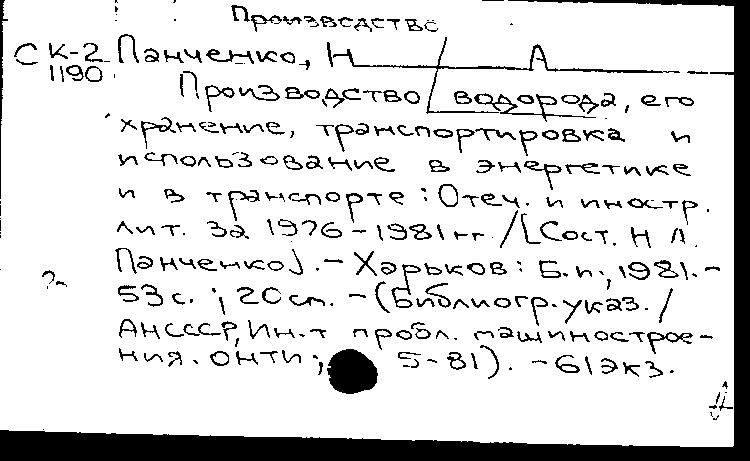 Производство
СК-2 Панченко, Н А
1190
Производство водорода, его
хранение, транспортировка и
использование в энергетике
и в транспорте: Отеч. и иностр.
лит. за 1976-1981 гг. / [Сост. Н А.
Панченко]. - Харьков: Б.и., 1981. -
53 с.; 20 см. - (Библиогр. указ. /
АНСССР, Ин-т пробл. машинострое-
ния. ОНТИ; 5-81). - 61 экз.